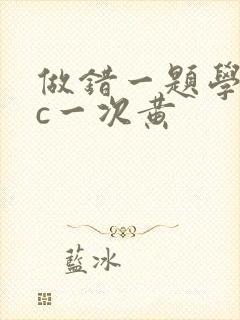 做錯一題學
c一次黃
藍冰